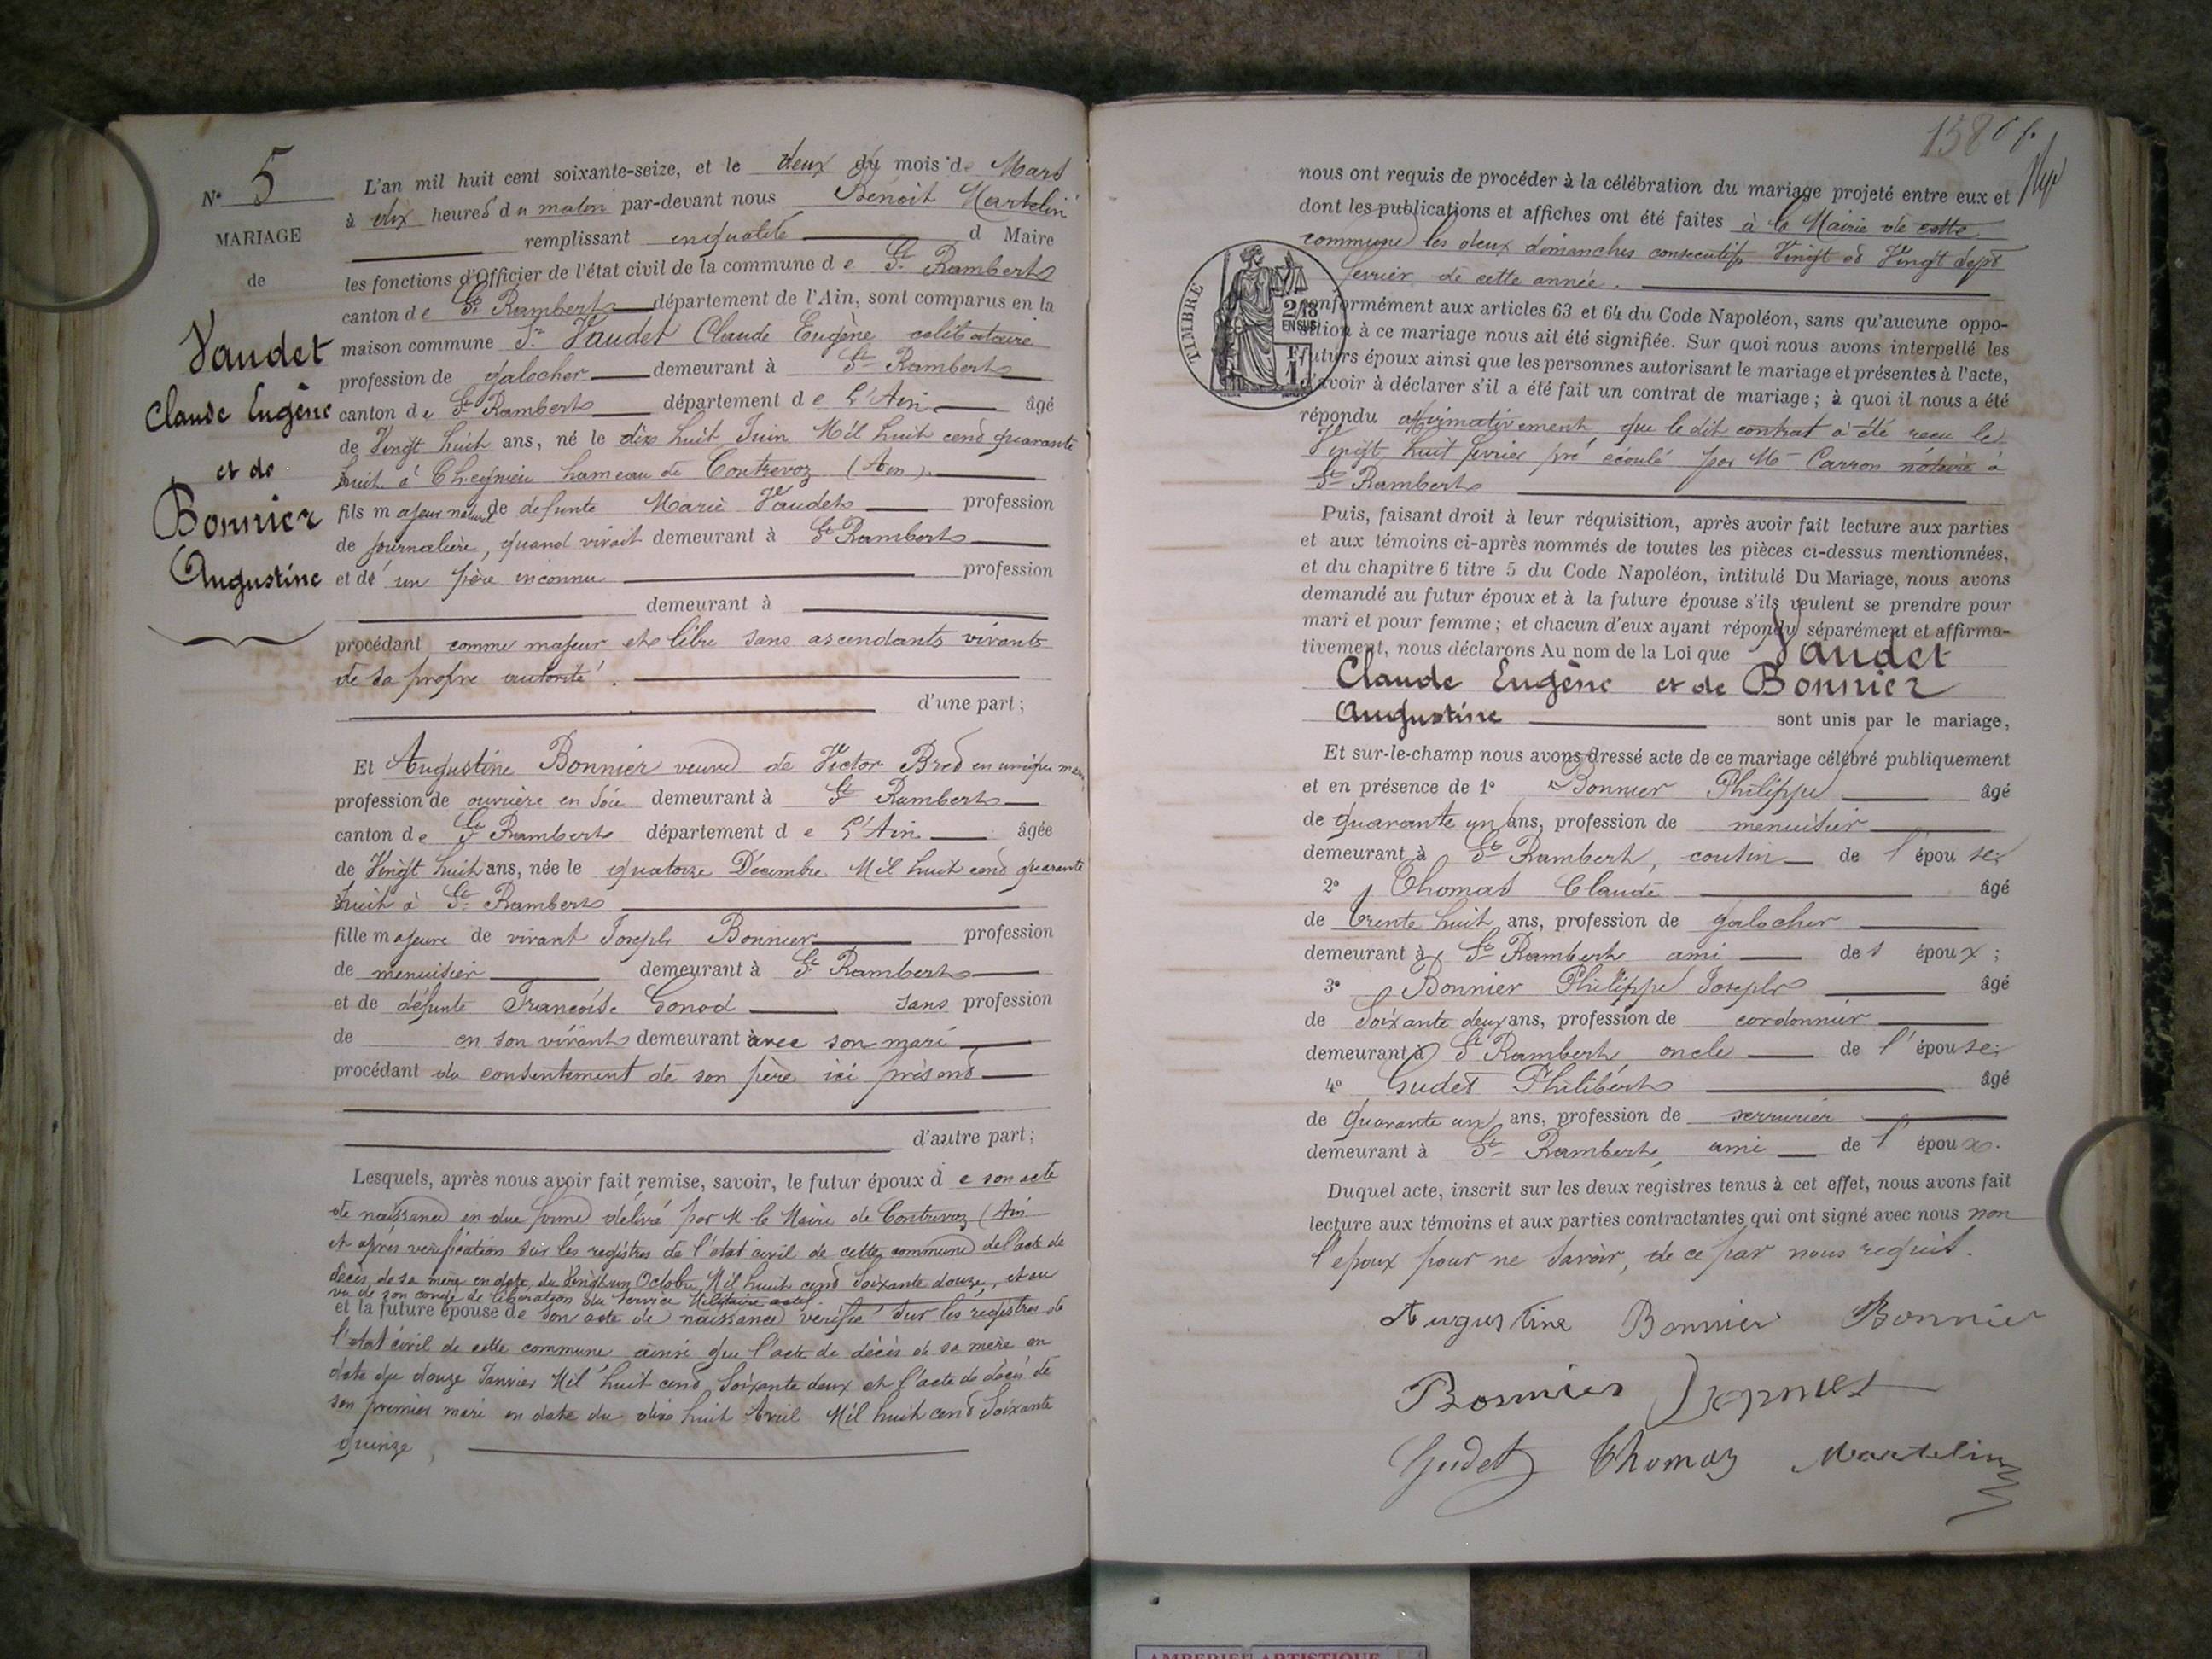 N° 5
MARIAGE
de
Vaudet
Claude Eugène
et de
Bonnier
Augustine
L'an mil huit cent soixante-seize, et le deux du mois de Mars
à dix heures du matin par-devant nous Benoit Martelin
remplissant enqualité d Maire
les fonctions d'Officier de l'état civil de la commune de St Rambert
canton de St Rambert département de l'Ain, sont comparus en la
maison commune Sr Vaudet Claude Eugène celibataire
profession de galocher demeurant à St Rambert
canton de St Rambert département de L'Ain âgé
de Vingt huit ans, né le dix huit Juin Mil huit cent quarante
huit à Cheignieu hameau de Contrevoz (Ain).
fils majeur naturel de defunte Marie Vaudet profession
de journalière, quand vivait demeurant à St Rambert
et de un père inconnu profession
demeurant à
procédant comme majeur et libre sans ascendants vivants
de sa propre autorité.
d'une part;
Et Augustine Bonnier veuve de Victor Bred en unique
profession de ouvrière en soie demeurant à St Rambert
canton de St Rambert département de L'Ain âgée
de Vingt huit ans, née le quatorze Décembre Mil huit cent quarante
huit à St Rambert
fille majeure de vivant Joseph Bonnier profession
de menuisier demeurant à St Rambert
et de défunte Francoise Gonod sans profession
de en son vivant demeurant avec son mari
procédant du consentement de son père ici présent
d'autre part;
Lesquels, après nous avoir fait remise, savoir, le futur époux de son acte
de naissance en due forme délivré par M le Maire de Contrevoz (Ain
et après verification sur les registres de l'état civil de cette commune de l'acte de
décès de sa mère en date du Vingt un Octobre Mil huit cent soixante douze, et au
vu de son congé de libération du service Militaire actif.
et la future épouse de son acte de naissance verifié sur les registres de
l'état civil de cette commune ainsi que l'acte de décès de sa mère en
date du douze Janvier Mil huit cent soixante deux et l'acte de décès de
son premier mari en date du dix huit Avril Mil huit cent soixante
quinze,
nous ont requis de procéder à la célébration du mariage projeté entre eux et
dont les publications et affiches ont été faites à la Mairie de cette
commune les deux dimanches consecutifs Vingt et Vingt sept
fevrier de cette année.
TIMBRE
2/10
EN SUS
1F
conformément aux articles 63 et 64 du Code Napoléon, sans qu'aucune oppo-
sition à ce mariage nous ait été signifiée. Sur quoi nous avons interpellé les
futurs époux ainsi que les personnes autorisant le mariage et présentes à l'acte,
d'avoir à déclarer s'il a été fait un contrat de mariage; à quoi il nous a été
répondu affirmativement, que le dit contrat a été recu le
Vingt huit fevrier pré écoulé par Me Carron notaire à
St Rambert
Puis, faisant droit à leur réquisition, après avoir fait lecture aux parties
et aux témoins ci-après nommés de toutes les pièces ci-dessus mentionnées,
et du chapitre 6 titre 5 du Code Napoléon, intitulé Du Mariage, nous avons
demandé au futur époux et à la future épouse s'ils veulent se prendre pour
mari et pour femme; et chacun d'eux ayant répondu séparément et affirma-
tivement, nous déclarons Au nom de la Loi que Vaudet
Claude Eugène et de Bonnier
Augustine sont unis par le mariage,
Et sur-le-champ nous avons dressé acte de ce mariage célébré publiquement
et en présence de 1° Bonnier Philippe âgé
de quarante un ans, profession de menuisier
demeurant à St Rambert, cousin de l'épouse;
2° Thomas Claude âgé
de trente huit ans, profession de galocher
demeurant à St Rambert ami de l époux;
3° Bonnier Philippe Joseph âgé
de soixante deux ans, profession de cordonnier
demeurant à St Rambert, oncle de l'épouse;
4° Gudet Philibert âgé
de quarante un ans, profession de serrurier
demeurant à St Rambert, ami de l'époux.
Duquel acte, inscrit sur les deux registres tenus à cet effet, nous avons fait
lecture aux témoins et aux parties contractantes qui ont signé avec nous non
l'époux pour ne savoir, de ce par nous requis.
Augustine Bonnier Bonnier
Bonnier
Gudet Thomas Martelin
AMBERIEU ARTISTIQUE